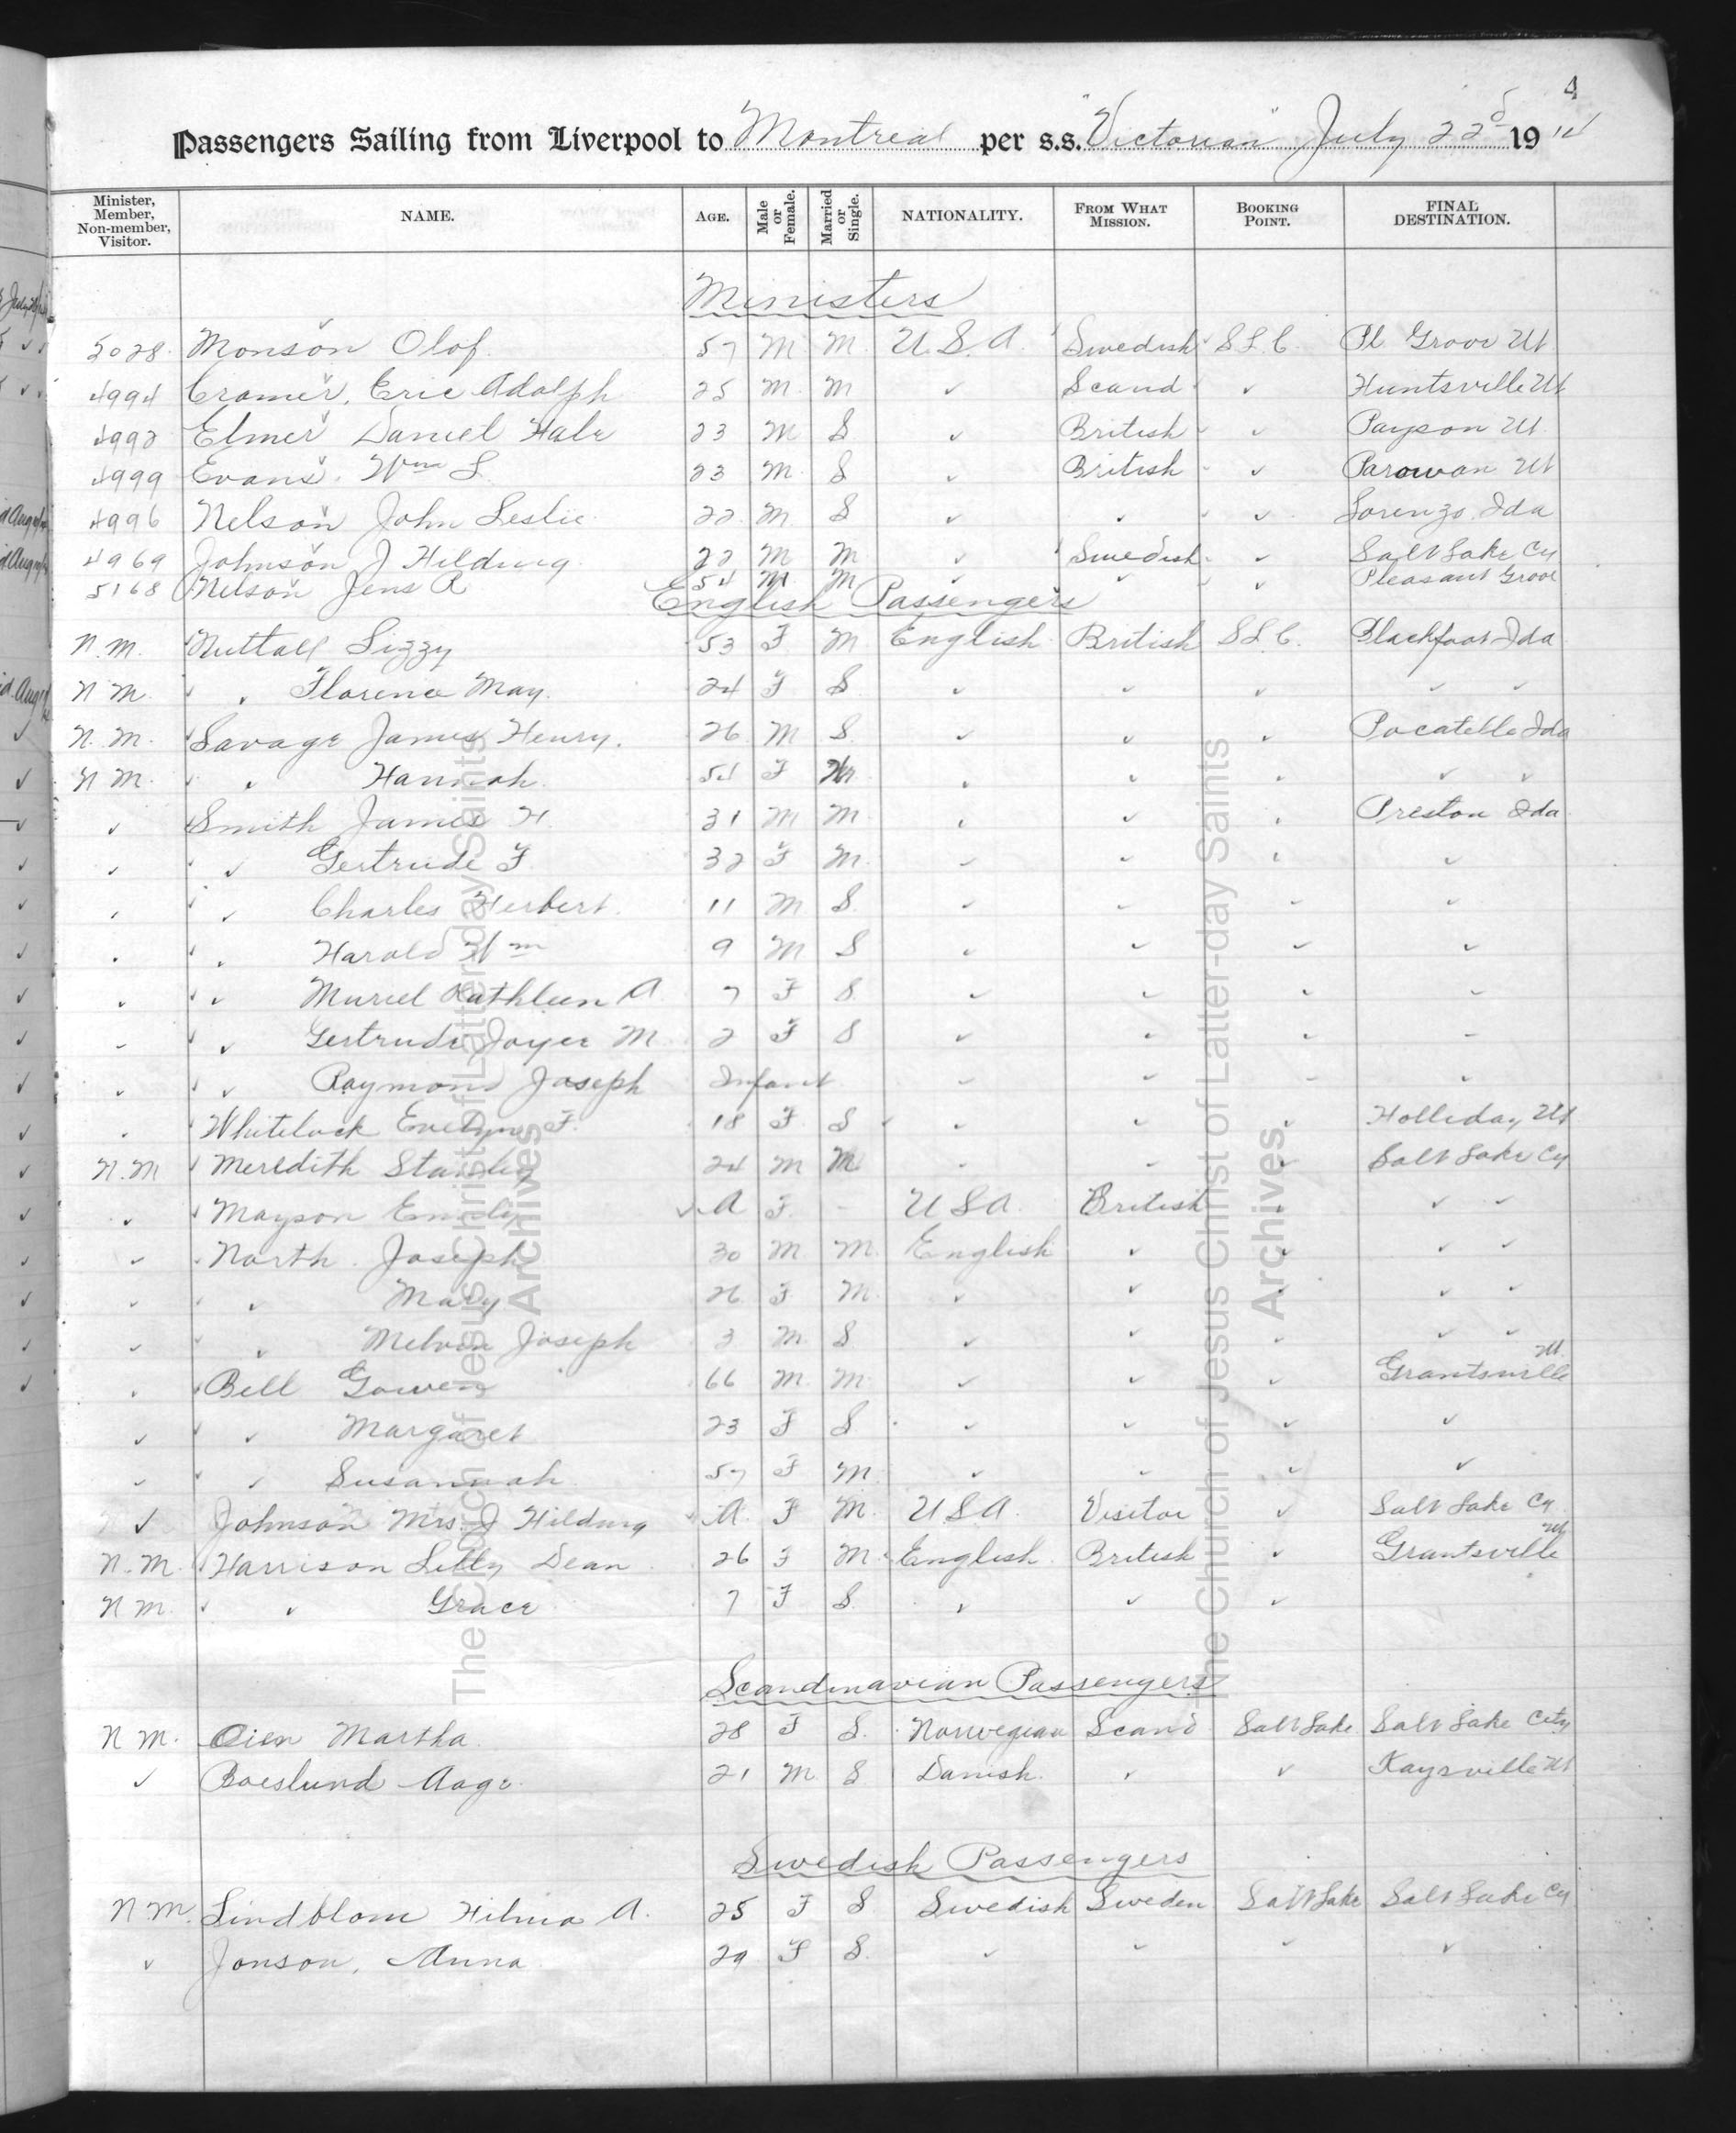 4
Passengers Sailing from Liverpool to Montreal per s.s. "Victorian" July 22d 1914
Minister, Member, Non-member, Visitor. NAME. AGE. Male or Female. Married or Single. NATIONALITY. FROM WHAT MISSION. BOOKING POINT. FINAL DESTINATION.
Ministers
5028 Monson Olof 57 M M U.S.A. Swedish S.L.C. Pl Grove Ut
4994 Cramer, Eric Adolph 25 M M ✓ Scand ✓ Huntsville Ut
4992 Elmer Daniel Hale 23 M S ✓ British ✓ Payson Ut
4999 Evans. Wm L 23 M S ✓ British ✓ Parowan Ut
4996 Nelson John Leslie 22 M S ✓ ✓ ✓ Lorenzo. Ida
4969 Johnson J Hilding 22 M M ✓ Swedish ✓ Salt Lake Cy
5168 Nelson Jens A 54 M M ✓ ✓ ✓ Pleasant Grove
English Passengers
N.M. Nuttall Lizzy 53 F M English British S.L.C. Blackfoot Ida
N M. ✓ ✓ Florence May. 24 F S ✓ ✓ ✓ ✓ ✓
N. M. Savage James Henry. 26 M S ✓ ✓ ✓ Pocatello Ida
N M. ✓ ✓ Hannah 54 F ✓ ✓ ✓ ✓ ✓
✓ Smith James H 31 M M ✓ ✓ ✓ Preston Ida
✓ ✓ ✓ Gertrude F 32 F M ✓ ✓ ✓ ✓
✓ ✓ ✓ Charles Herbert. 11 M S ✓ ✓ ✓ ✓
✓ ✓ ✓ Harold Wm 9 M S ✓ ✓ ✓ ✓
✓ ✓ ✓ Muriel Kathleen A 7 F S ✓ ✓ ✓ ✓
✓ ✓ ✓ Gertrude Joyce M 2 F S ✓ ✓ ✓ ✓
✓ ✓ ✓ Raymond Joseph Infant ✓ ✓ ✓ ✓
✓ Whitelock Evelyn F. 18 F S ✓ ✓ ✓ Holliday Ut
N.M ✓ Meredith Stanley 24 M M ✓ ✓ ✓ Salt Lake Cy
✓ ✓ Mayson Emily A F. - U S A. British ✓ ✓ ✓
✓ North Joseph 30 M M English ✓ ✓ ✓ ✓
✓ ✓ ✓ Mary 26 F M ✓ ✓ ✓ ✓ ✓
✓ ✓ ✓ Melvin Joseph 3 M S ✓ ✓ ✓ ✓ ✓
✓ Bell Gowen 66 M. M ✓ ✓ ✓ Grantsville Ut.
✓ ✓ ✓ Margaret 23 F S ✓ ✓ ✓ ✓
✓ ✓ ✓ Susannah 57 F M ✓ ✓ ✓ ✓
✓ Johnson Mrs. J Hilding A. F M. U S A. Visitor ✓ Salt Lake Cy
N.M. Harrison Lilly Dean 26 F M English British ✓ Grantsville Ut
N M. ✓ ✓ Grace 7 F S ✓ ✓ ✓
Scandinavian Passengers
N M. Oien Martha. 28 F S. Norwegian Scand Salt Lake Salt Lake City
✓ Boeslund Aage. 21 M S Danish. ✓ ✓ Kaysville Ut
Swedish Passengers
N M. Lindblom Hilma A. 25 F S Swedish Sweden Salt Lake Salt Lake Cy
✓ Jonson, Anna 29 F S. ✓ ✓ ✓ ✓
The Church of Jesus Christ of Latter-day Saints
Archives
The Church of Jesus Christ of Latter-day Saints
Archives